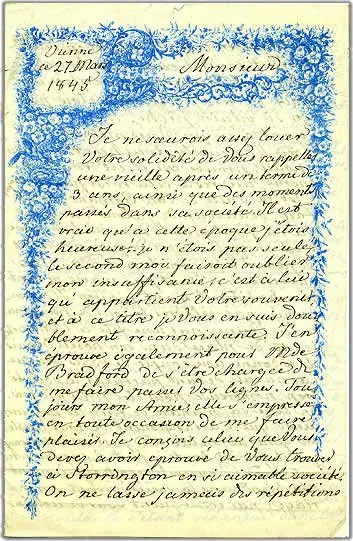 Vienne
ce 27 Mars
1845
Monsieur
Je ne sœurois assez louer
Votre solidité de vous rappeller
une vieille après un terme de
3 ans, ainsi que des moments
passés dans sa société. Il est
vrai qu'à cette époque j'étois
heureuse, je n'étois pas seule
le second moi faisoit oublier
mon insuffisanie, c'est à lui
qu'appartient votre souvenir
et à ce titre je vous en suis dou
blement reconnoissante. J'en
éprouve également pour Mde
Bradford de s'être chargée de
me faire passer vos lignes. Tou
jours mon Amie, elle s'empresse
en toute occasion de me faire
plaisir. Je conçois celui que vous
devez avoir éprouvé de vous trouver
à Storrington en si aimable société.
On ne lasse jamais des répétitions